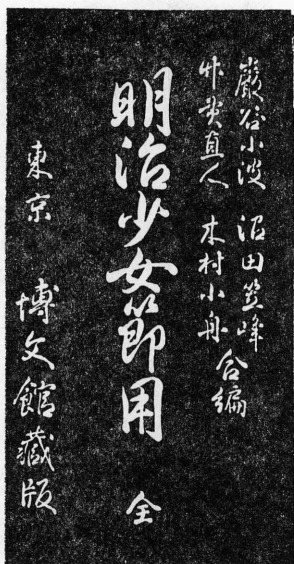 巖谷小波 沼田笠峰
竹貫直人 木村小舟 合編
明治少女節用 全
東京 博文館蔵版